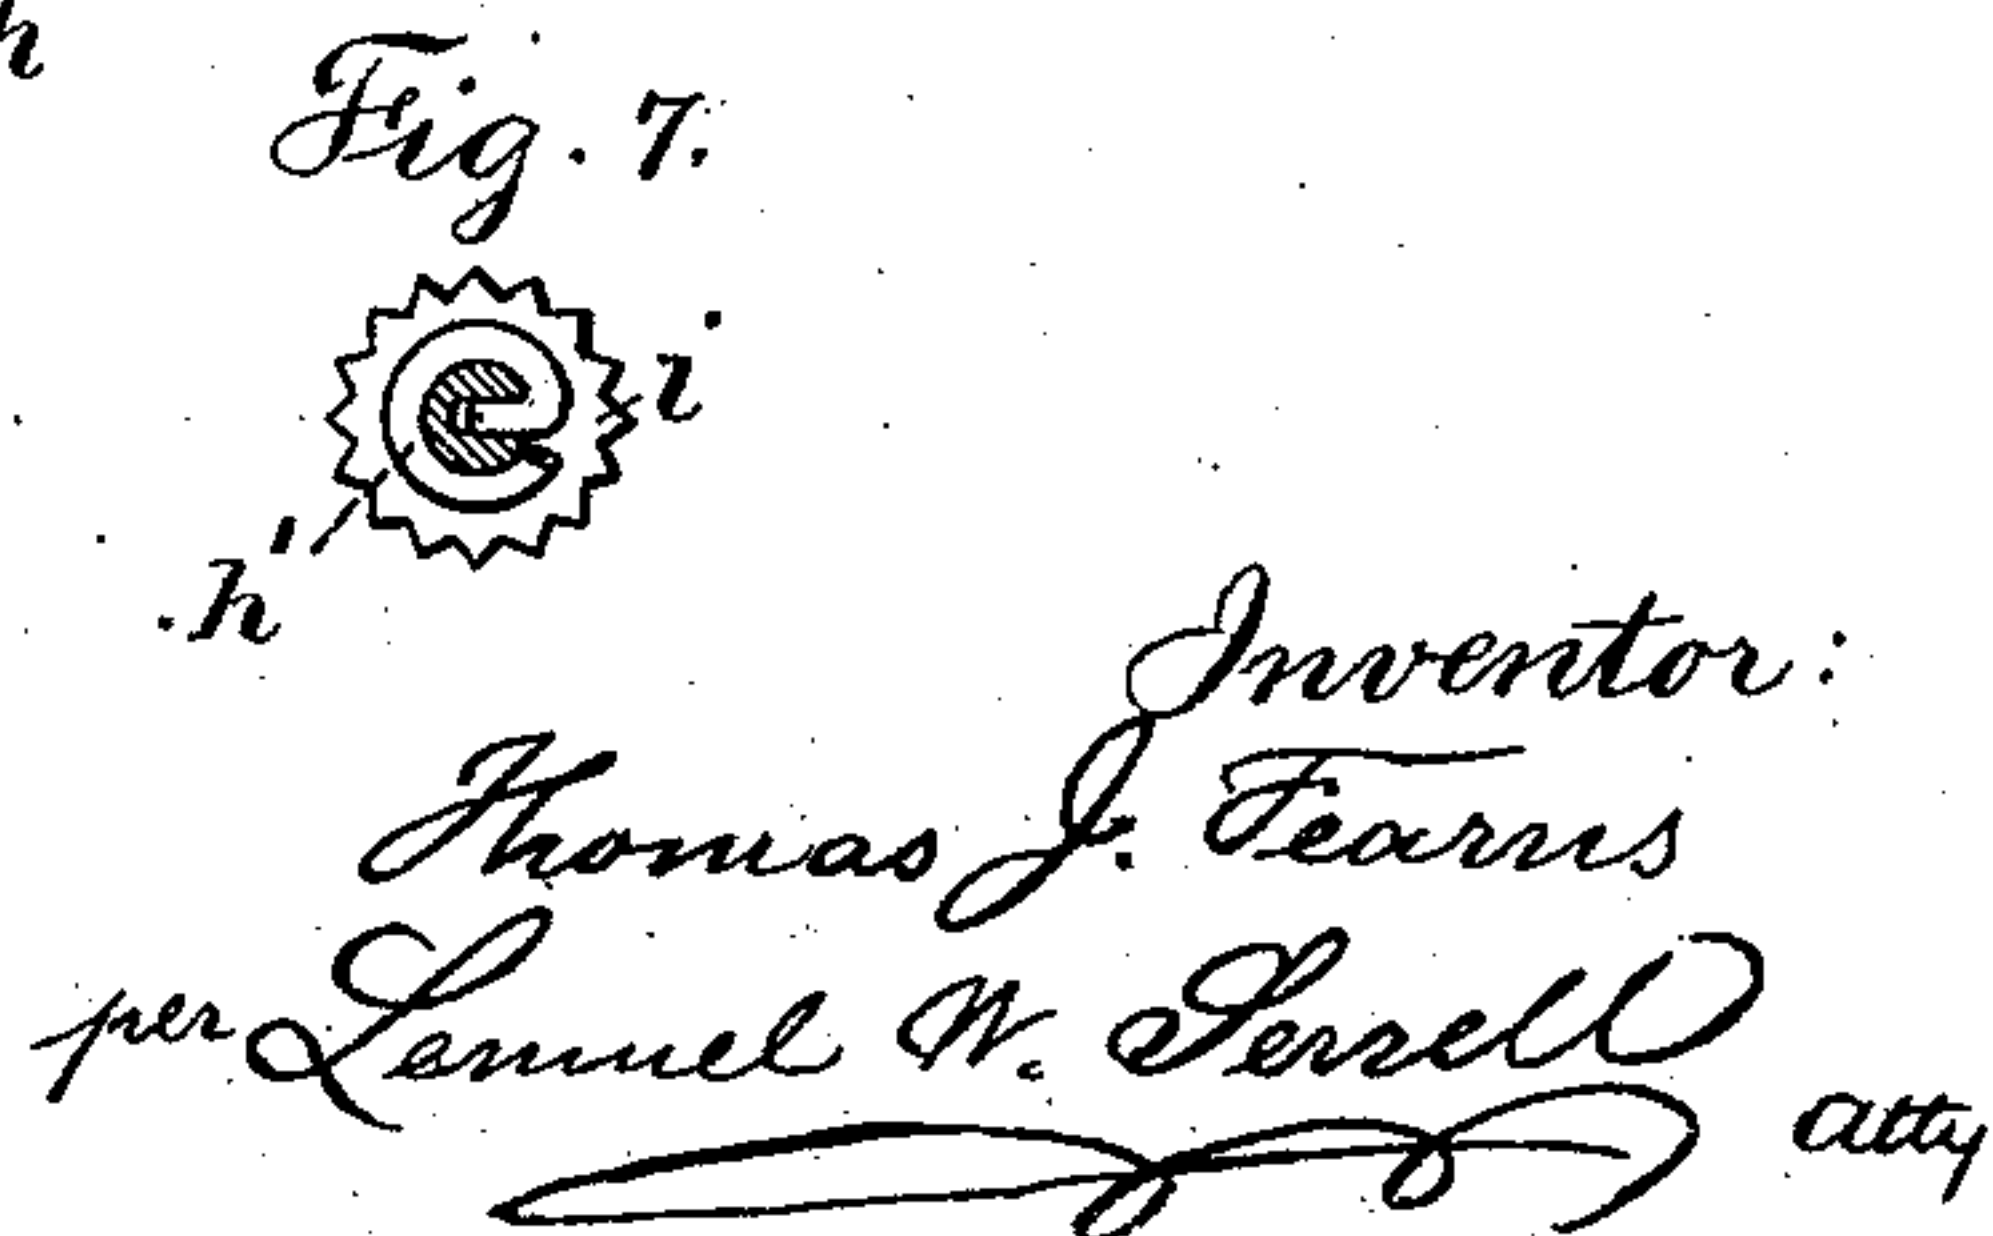 h
Fig. 7.
i
h'
Inventor:
Thomas J. Fearns
per Lemuel W. Serrell
atty